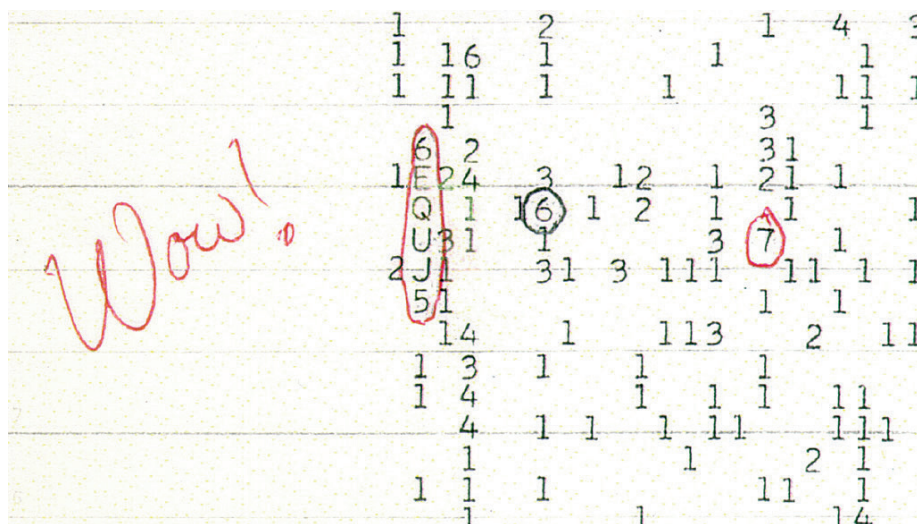 1 2 1 4 3
1 16 1 1 1
1 11 1 1 11 1
1 3 1
6 2 31
1E24 3 12 1 21 1
Q 1 16 1 2 1 1 1
Wow! U31 1 3 7 1
2J1 31 3 111 11 1 1
51 1 1
14 1 113 2 11
1 3 1 1 1
1 4 1 1 1 11
4 1 1 1 11 111
1 1 2 1
1 1 1 11 1
1 1 14